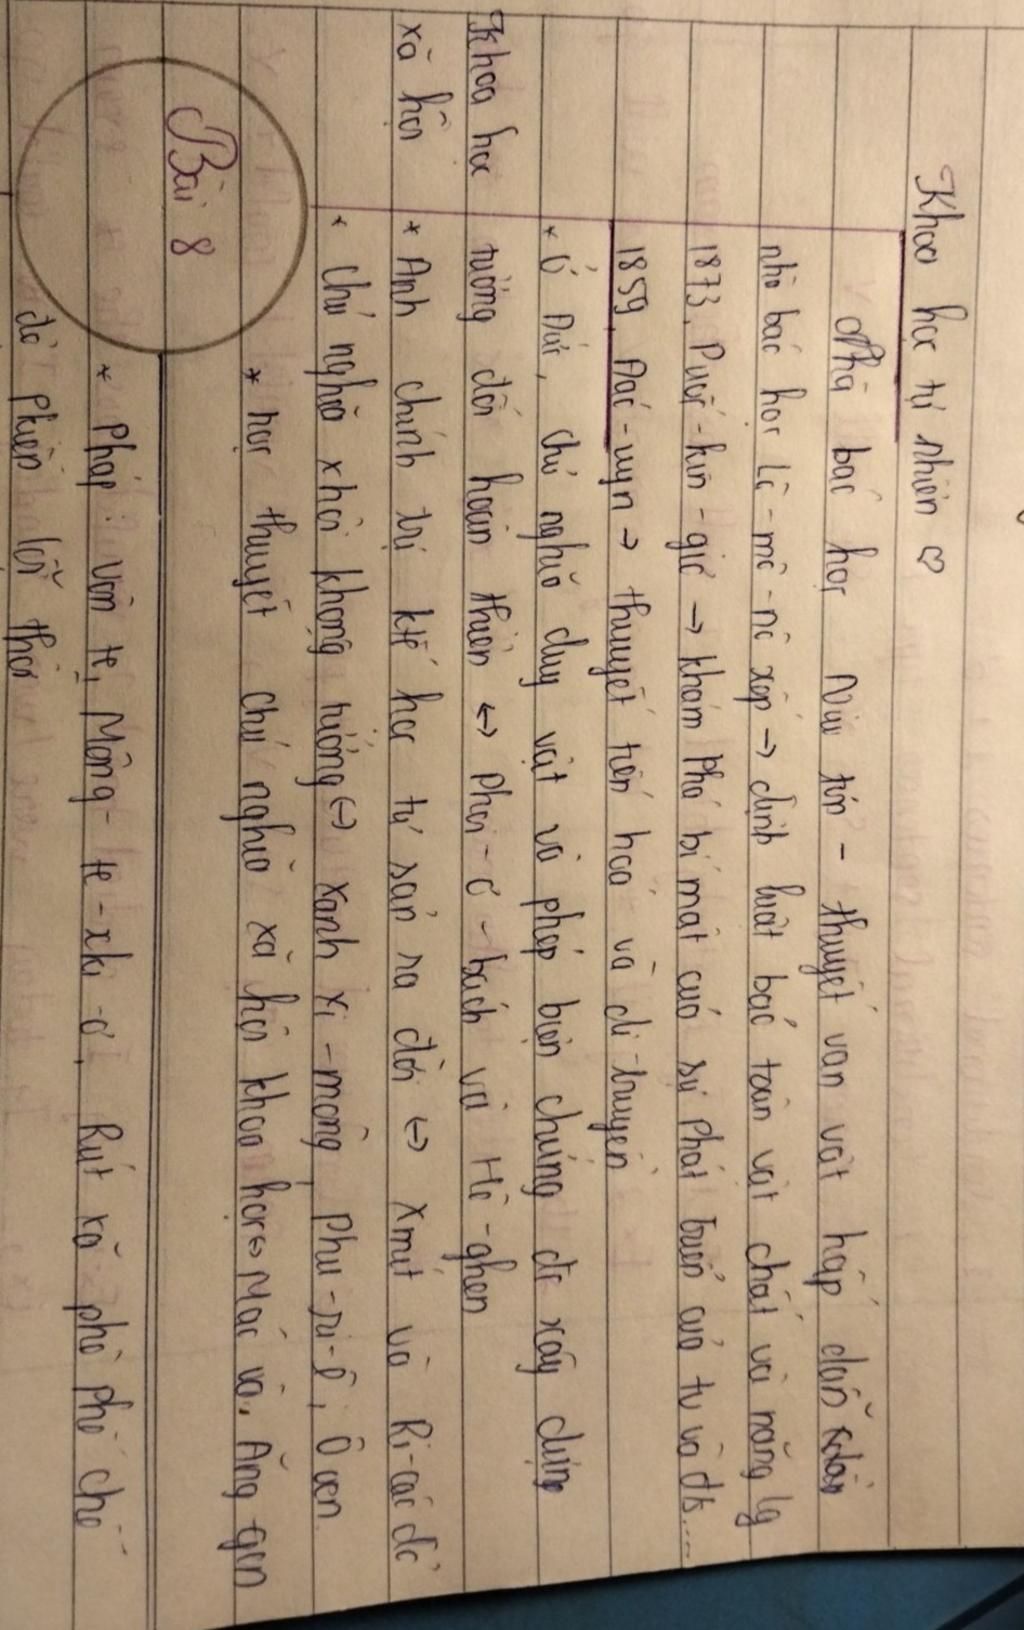 Khoa học tự nhiên ♡
Nhà bác học Niu tơn - thuyết vạn vật hấp dẫn
nhà bác học Lô-mô-nô xốp → định luật bảo toàn vật chất và năng lg
1873, Puốc-kin-giê → khám phá bí mật của sự phát triển của tv và đv....
1859 Đác-uyn → thuyết tiến hoá và di truyền
* Ở Đức, chủ nghĩa duy vật và phép biện chứng đc xây dựng
Khoa học tương đối hoàn thiện ↔ Phoi-ơ-bách và Hê-ghen
xã hội * Anh chính trị ktế học tư sản ra đời ↔ xmit và Ri-các đô
* Chủ nghĩa xhội không tưởng ↔ xanh xi-mông, Phu-ri-ê, Ô oen.
* học thuyết chủ nghĩa xã hội khoa học ↔ Mác và. Ăng gen
Bài 8
* Pháp: Vôn te, Mông-te-xki-ơ, Rút xô phê phê chế
độ phiến thời